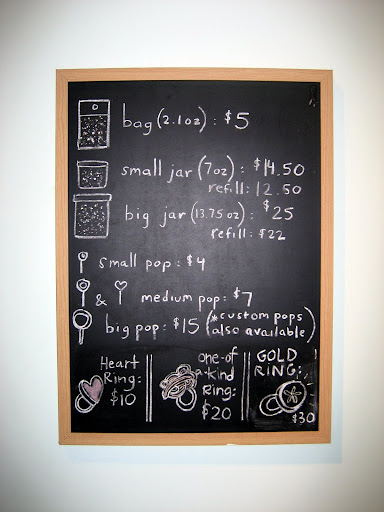 bag (2.1oz) : $5
small jar (7oz) : $14.50
refill: 12.50
big jar (13.75oz) : $25
refill: $22
small pop : $4
& medium pop: $7
big pop: $15 (*custom pops
also available)
Heart
Ring:
$10
one-of
a-kind
Ring:
$20
GOLD
RING:
$30